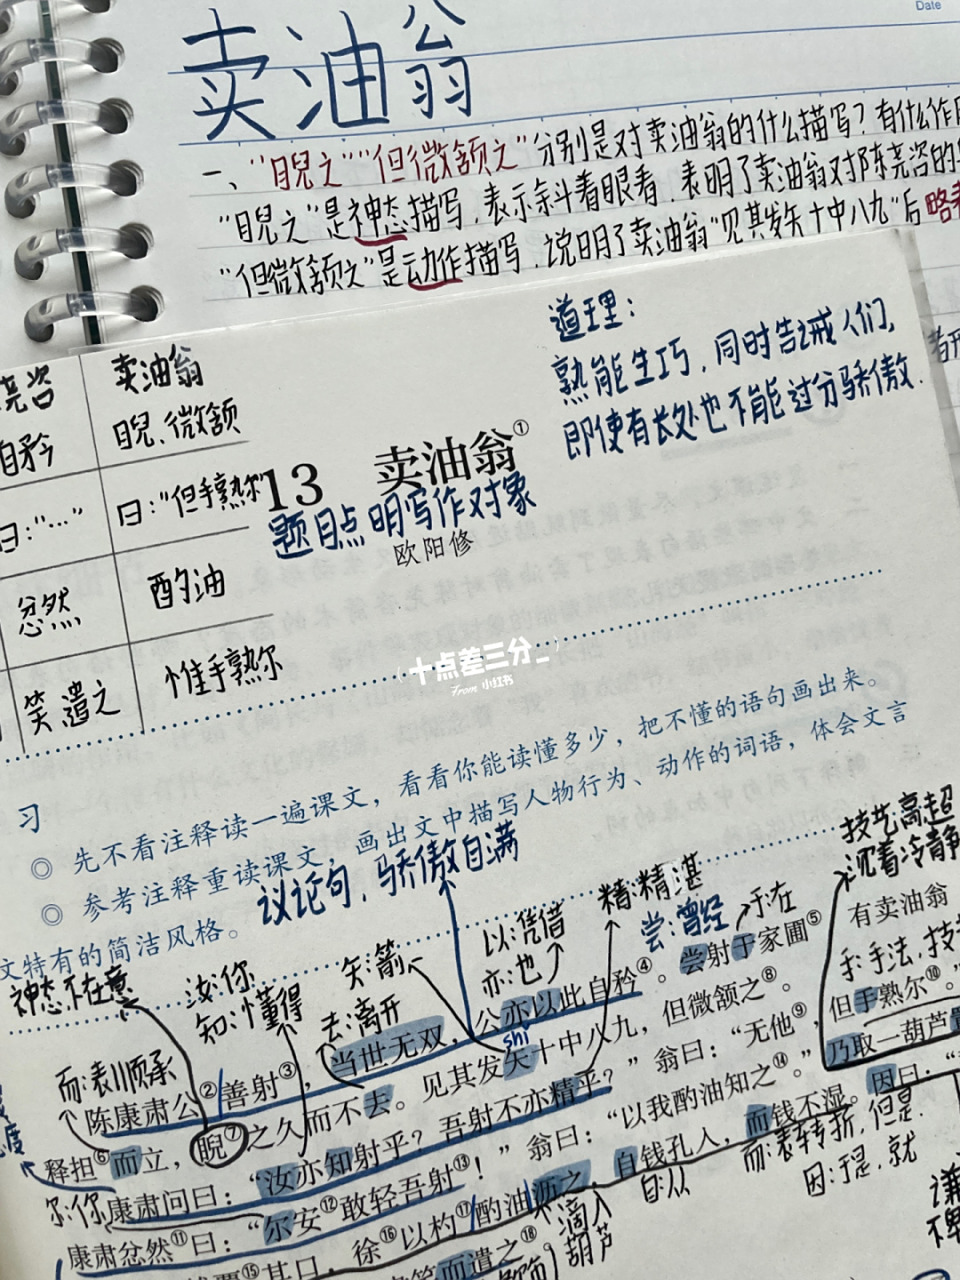 Date
卖油翁
一、"睨之""但微颔之"分别是对卖油翁的什么描写?有什么作用
"睨之"是神态描写,表示斜着眼看,表明了卖油翁对陈尧咨的
"但微颔之"是动作描写,说明了卖油翁"见其发矢十中八九"后略表
道理:
熟能生巧,同时告诫人们,
即使有长处也不能过分骄傲.
尧咨 卖油翁
自矜 睨、微颔
曰:"…" 曰:"但手熟尔"
忿然 酌油
笑遣之 惟手熟尔
13 卖油翁①
题目点明写作对象
欧阳修
十点差三分_
From 小红书
习
◎ 先不看注释读一遍课文,看看你能读懂多少,把不懂的语句画出来。
◎ 参考注释重读课文,画出文中描写人物行为、动作的词语,体会文言
文特有的简洁风格。
议论句,骄傲自满
技艺高超
沉着冷静
精:精湛
尝:曾经
于:在
以:凭借
亦:也
矢:箭
去:离开
汝:你
知:懂得
神态不在意
而:表顺承
手:手法,技
陈康肃公②善射③,当世无双,公亦以此自矜④。尝射于家圃⑤,有卖油翁
shǐ
释担⑥而立,睨⑦之久而不去。见其发矢十中八九,但微颔之⑧。
康肃问曰:"汝亦知射乎?吾射不亦精乎?"翁曰:"无他⑨,但手熟尔⑩。"
尔:你
康肃忿然⑪曰:"尔安⑫敢轻吾射⑬!"翁曰:"以我酌油知之⑭。"乃取一葫芦置
其口,徐⑯以杓⑰酌油沥之,自钱孔入,而钱不湿。因曰:"
笑而遣之⑱
自:从
而:表转折,但是.
因:于是,就
滴入
葫芦